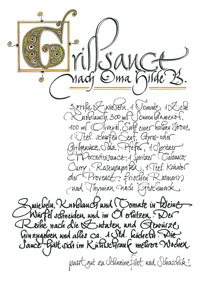 Grillsauce
nach Oma Hilde B.
3 große Zwiebeln, 1 Tomate, 1 Zehe
Knoblauch, 500 ml
100 ml Olivenöl, Saft einer halben
1 Teel. Senf
Salz, Pfeffer, 1 Spritzer
1 Spritzer Tabasco,
Curry, Rosenpaprika, 1 Teel. Kräuter
der Provence, frischen Rosmarin
und Thymian nach Geschmack.
Zwiebeln, Knoblauch und Tomate in kleine
Würfel schneiden und im Öl erhitzen. Der
Reihe nach die Zutaten und Gewürze
hinzugeben und alles ca. 1 Std. köcheln. Die
Sauce hält sich im Kühlschrank mehrere Wochen.
passt gut zu und Schaschlik